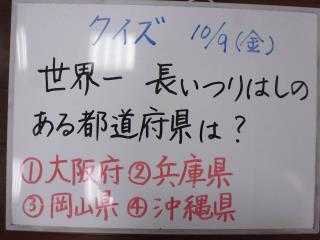 クイズ 10/9(金)
世界一 長いつりはしの
ある都道府県は?
①大阪府②兵庫県
③岡山県④沖縄県